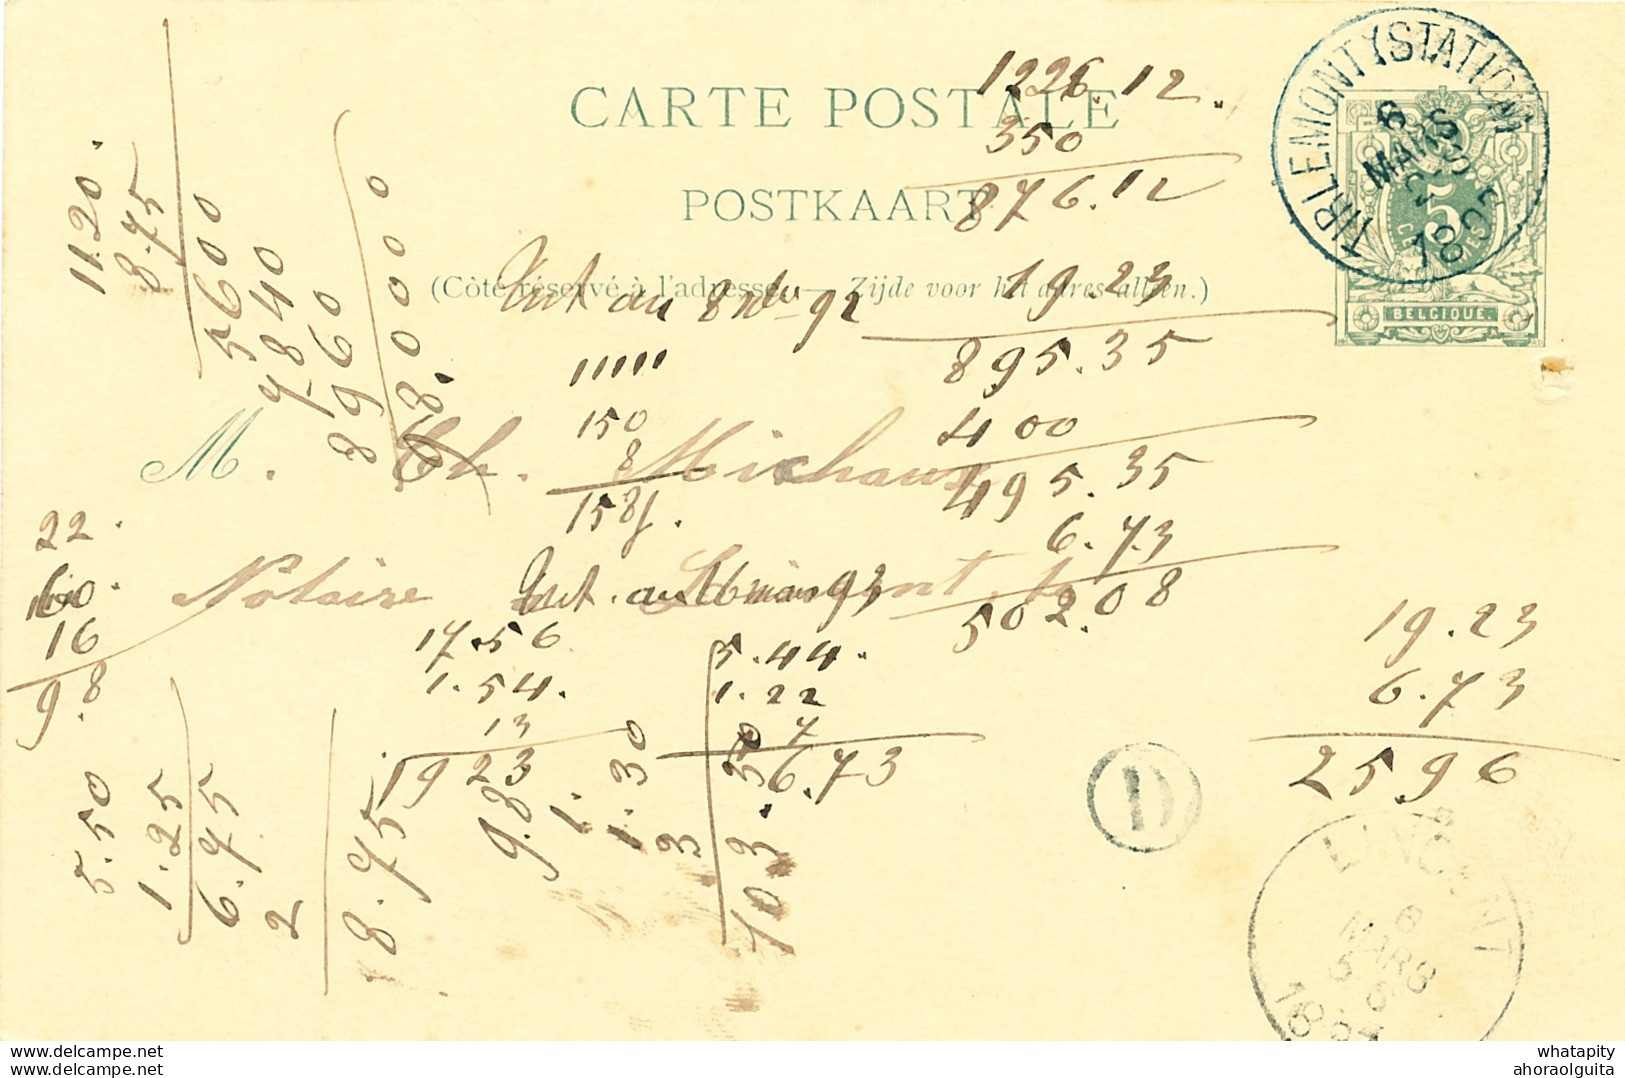 CARTE POSTALE
POSTKAART
(Côté réservé à l'adresse. — Zijde voor het adres alleen.)
TIRLEMONT (STATION)
6
MARS
5
BELGIQUE
M. Ch. Michaux
Notaire
1226.12
350
876.12
19.23
895.35
400
495.35
6.73
502.08
Int au 8 9bre 92
150
8
158
Int. au 6 mars 93
17.56
1.54
13
1923
5.44.
1.22
7
6.73
19.23
6.73
2596
11.20.
8.75
5600
7840
8960
22.
16
9.8
5.50
1.25
6.75
2
8.75
9.8
1.30
1.30
3
D
6
MARS
whatapity
ahoraolguita